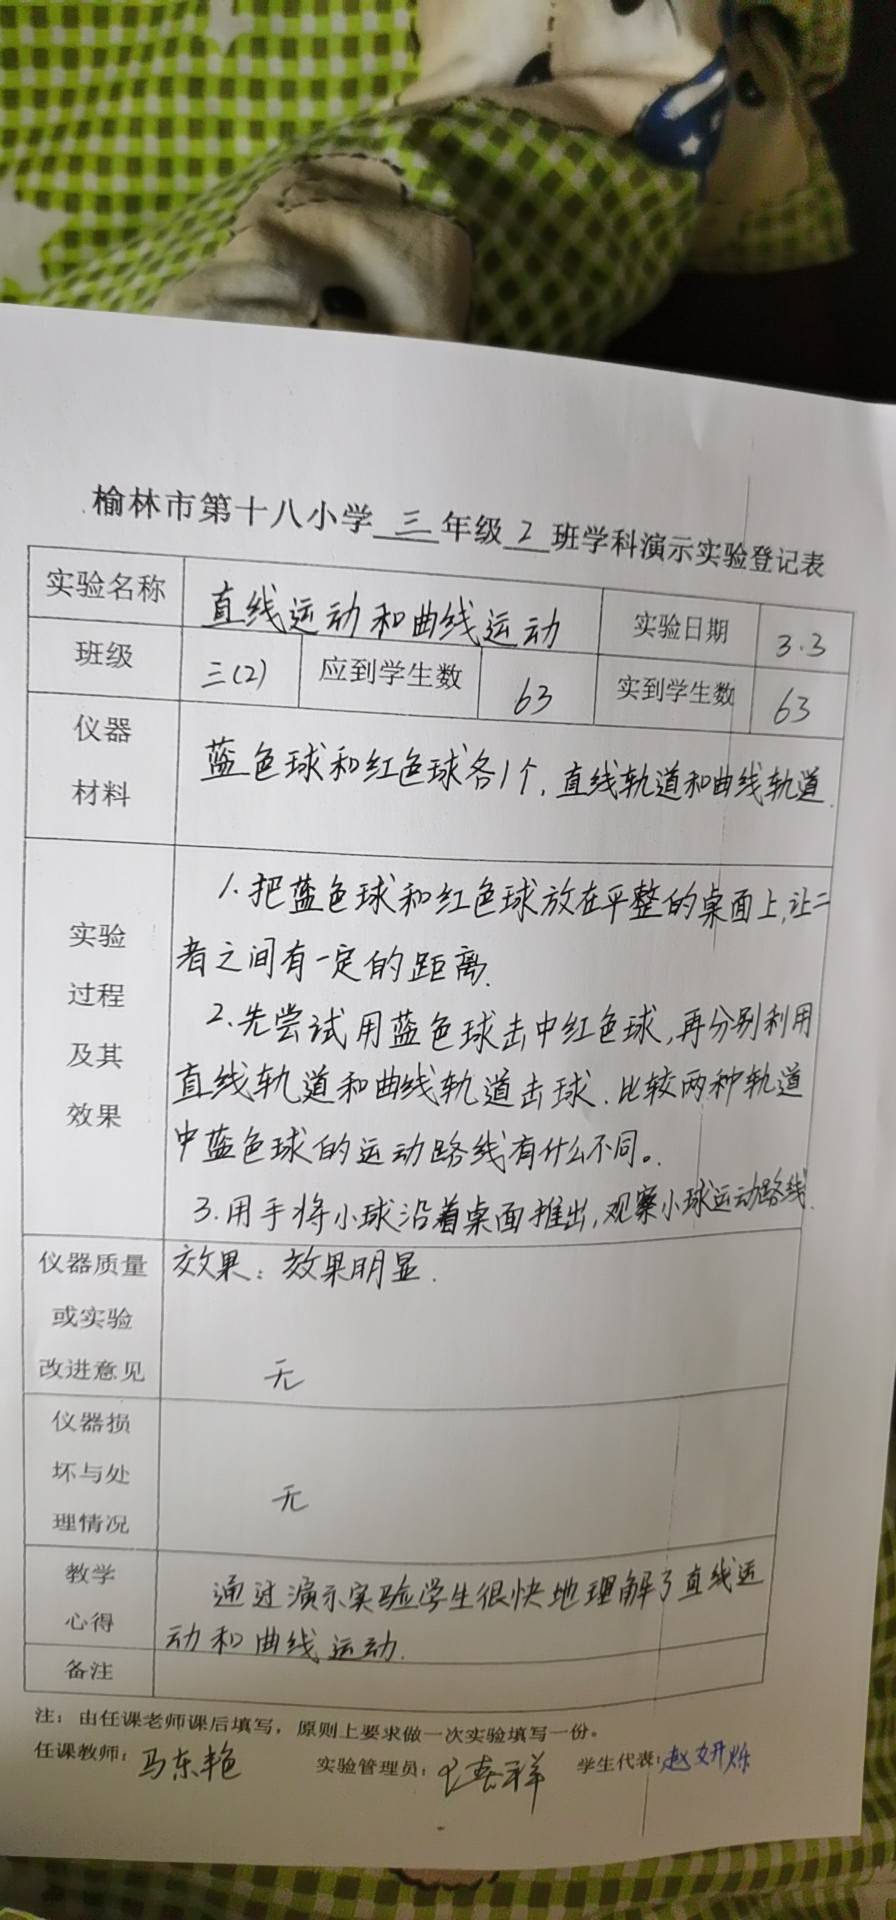 榆林市第十八小学 三 年级 2 班学科演示实验登记表
实验名称 直线运动和曲线运动 实验日期 3.3
班级 三(2) 应到学生数 63 实到学生数 63
仪器
材料
蓝色球和红色球各1个,直线轨道和曲线轨道.
实验
过程
及其
效果
1.把蓝色球和红色球放在平整的桌面上,让二
者之间有一定的距离.
2.先尝试用蓝色球击中红色球,再分别利用
直线轨道和曲线轨道击球.比较两种轨道
中蓝色球的运动路线有什么不同。
3.用手将小球沿着桌面推出,观察小球运动路线.
效果:效果明显.
仪器质量
或实验
改进意见
无
仪器损
坏与处
理情况
无
教学
心得
通过演示实验学生很快地理解了直线运
动和曲线运动.
备注
注:由任课老师课后填写,原则上要求做一次实验填写一份。
任课教师:马东艳 实验管理员: 学生代表:赵妍烁